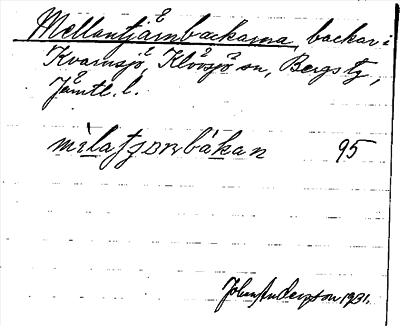 Mellantjärnbackarna, backar i
Kvarnsjö, Klövsjö sn, Bergs tg,
Jämtl. l.
mìlatʃɔnbákan 95
John Anderzson 1931.